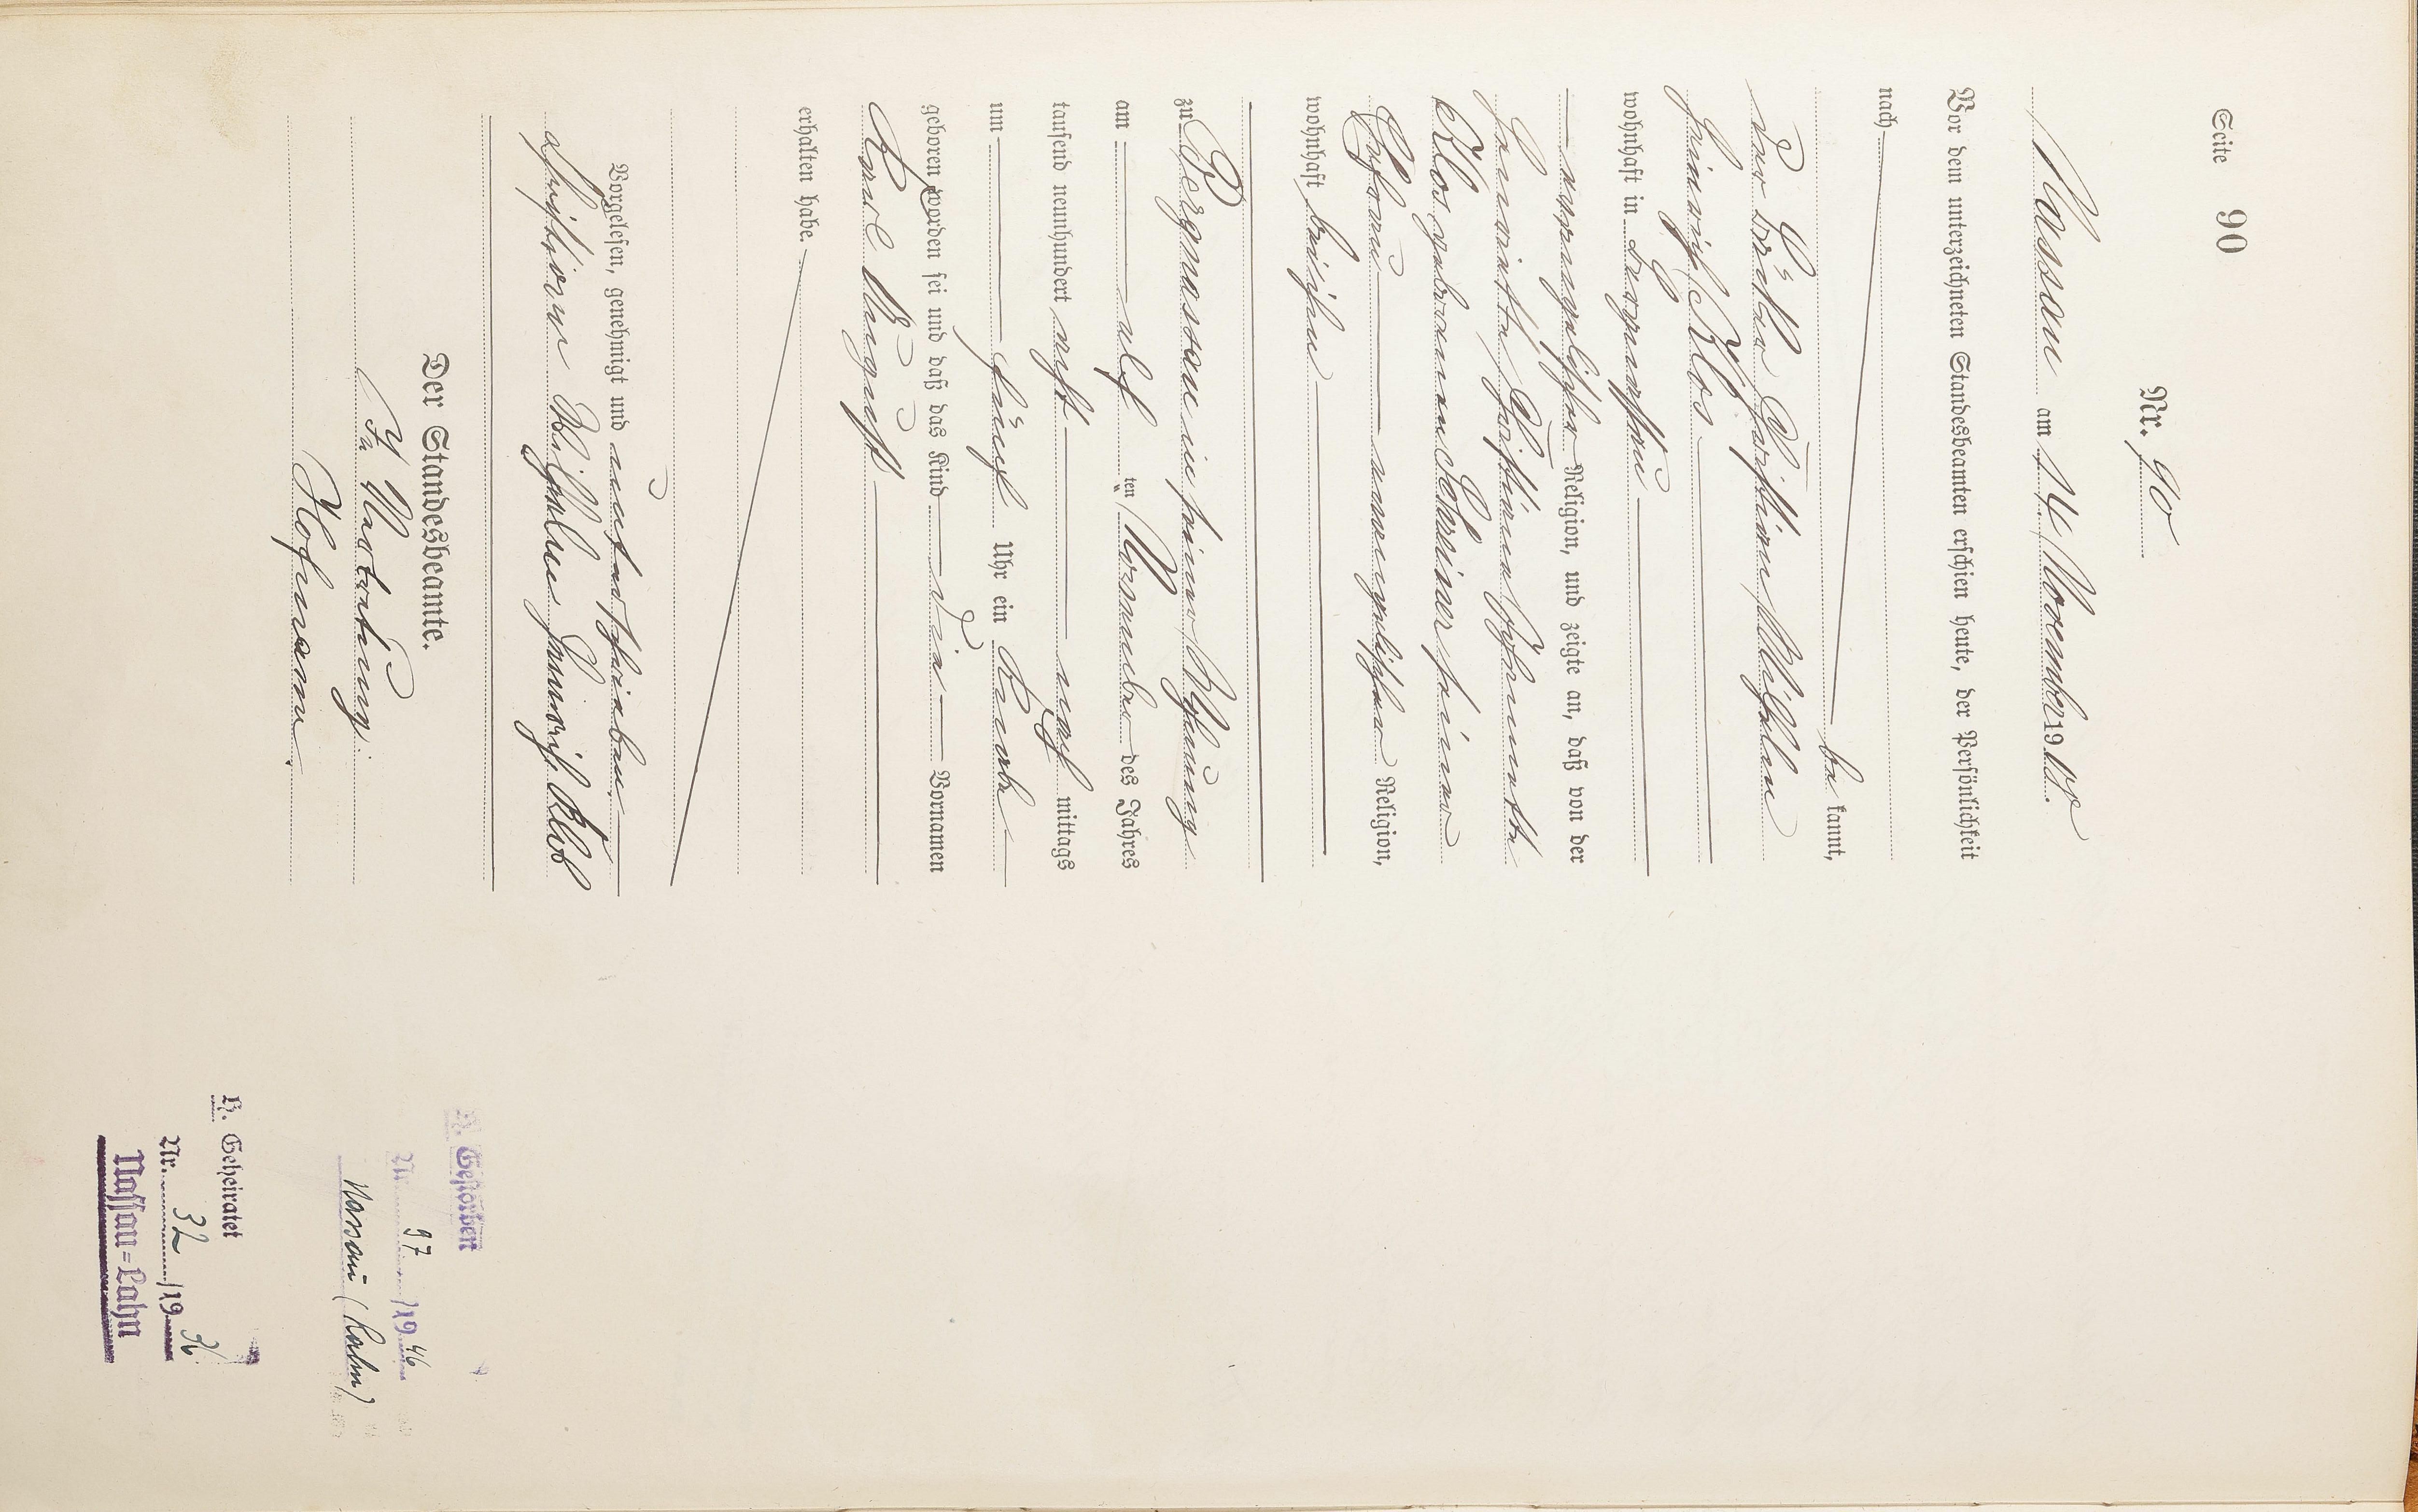 Seite 90
Nr. 90
Nassau am 14 November 1908.
Vor dem unterzeichneten Standesbeamten erschien heute, der Persönlichkeit
nach
be kannt,
der Christian Wilhelm
Heinrich Klos
wohnhaft in
evangelischer Religion, und zeigte an, daß von der
Henriette Christiane
Klos geborenen seiner
Ehefrau evangelischer Religion,
wohnhaft bei ihm
zu Bergnassau in seiner Wohnung
am elf ten November des Jahres
tausend neunhundert acht nach mittags
um fünf Uhr ein Knabe
geboren worden sei und daß das Kind die Vornamen
Karl August
erhalten habe.
Vorgelesen, genehmigt und unterschrieben
Christian Wilhelm Heinrich Klos
Der Standesbeamte.
In Vertretung.
Hofmann.
H. Gestorben
Nr. 97 /19 46
Nassau (Lahn)
H. Geheiratet
Nr. 32 /19
Nassau=Lahn